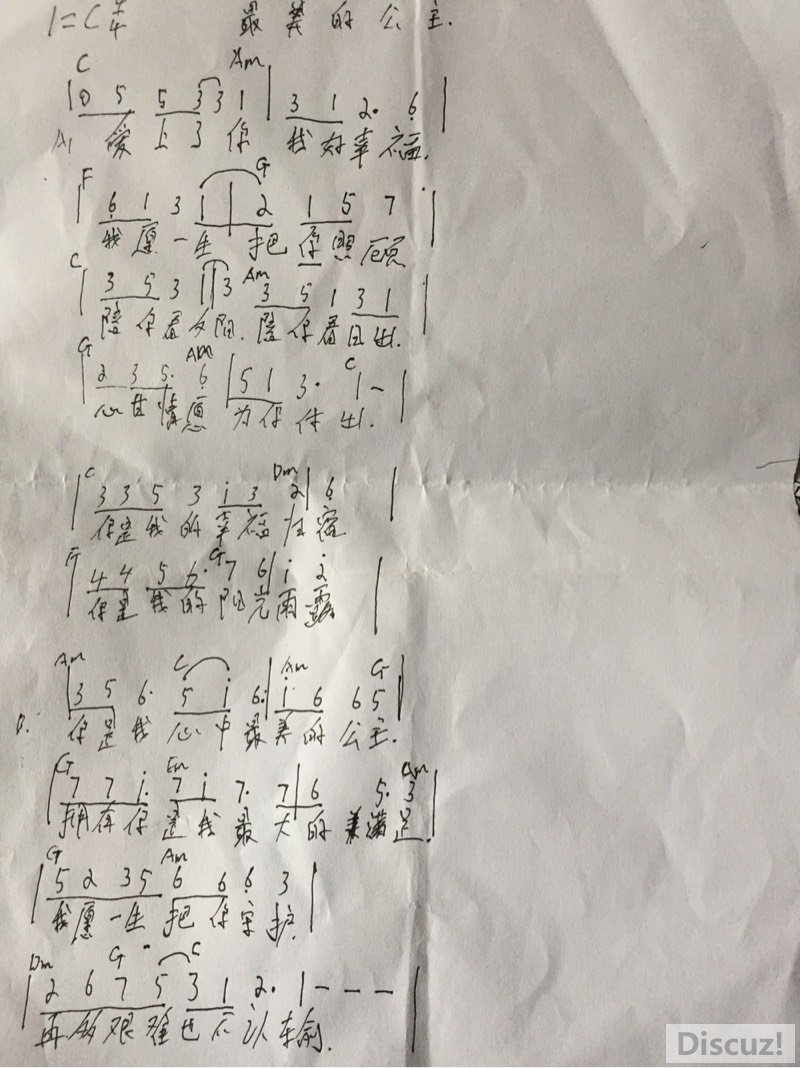 1=C 4/4 最美的公主.
C Am
0 5 5 3 3 1 | 3 1 2· 6 |
A, 爱上了你 我好幸福.
F G
6 1 3 1 | 2 1 5 7 |
我愿一生 把你照顾
C Am
3 5 3 1 | 3 3 5 1 3 1 |
陪你看夕阳.陪你看日出.
G Am C
2 3 5· 6 | 5 1 3· 1 - |
心甘情愿 为你付出.
C Dm
3 3 5 3 i 3 2 | 6 |
你是我的幸福归宿
F G
4 4 5 6· 7 6 | i 2 |
你是我的阳光雨露
Am C Am G
3 5 6· 5 i 6· | i 6 6 5 |
B. 你是我心中最美的公主.
G Em Am
7 7 i· 7 i 7· 7 | 6 5· 3 |
拥有你是我最大的满足.
G Am
5 2 3 5 6 6 6 3 |
我愿一生把你守护.
Dm G C
2 6 7 5 3 1 2· 1 - - - |
再多艰难也不认输.
Discuz!